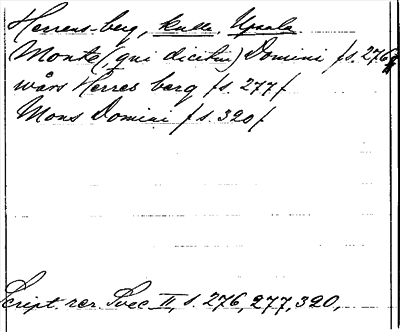 Herrens-berg, kulle, Upsala
Monte (qui dicitur) Domini /s. 276/
wårs Herres berg /s. 277/
Mons Domini /s. 320/
Script. rer. Svec II, s. 276, 277, 320,